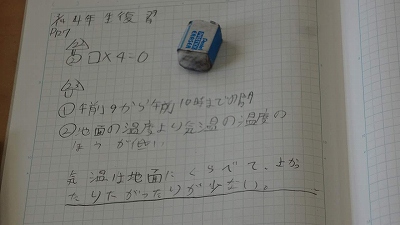 4年生復習
P27
□×4=0
①午前9から午前10時までの間
②地面の温度より気温の温度の
ほうが低い。
気温は地面にくらべて、上がっ
たりたがったりが少ない。